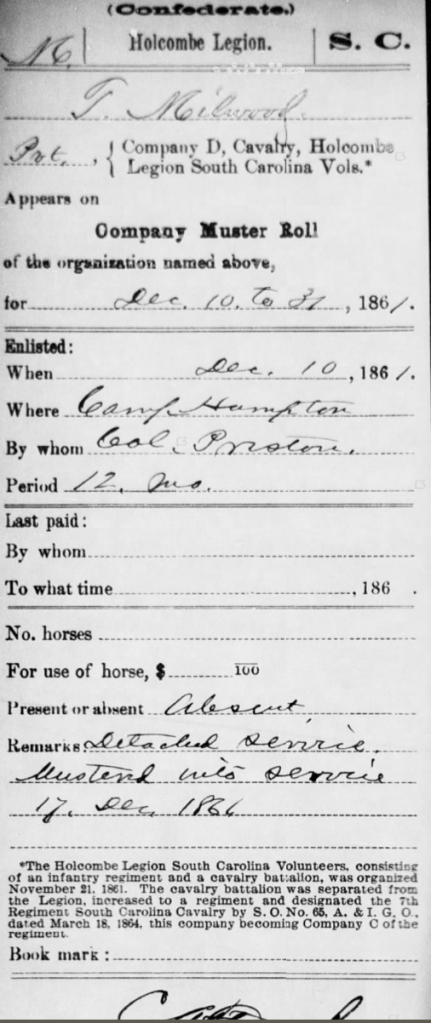 (Confederate.)
M. | Holcombe Legion. | S. C.
T. Milwood
Pvt., { Company D, Cavalry, Holcombe
Legion South Carolina Vols.*
Appears on
Company Muster Roll
of the organization named above,
for Dec. 10. to 31, 1861.
Enlisted:
When Dec. 10, 1861.
Where Camp Hampton
By whom Col. Preston.
Period 12. mo.
Last paid:
By whom
To what time , 186 .
No. horses
For use of horse, $ 100
Present or absent Absent
Remarks: Detached service.
Mustered into service
17, Dec, 1861
*The Holcombe Legion South Carolina Volunteers, consisting
of an infantry regiment and a cavalry battalion, was organized
November 21, 1861. The cavalry battalion was separated from
the Legion, increased to a regiment and designated the 7th
Regiment South Carolina Cavalry by S. O. No. 65, A. & I. G. O.,
dated March 18, 1864, this company becoming Company C of the
regiment.
Book mark: